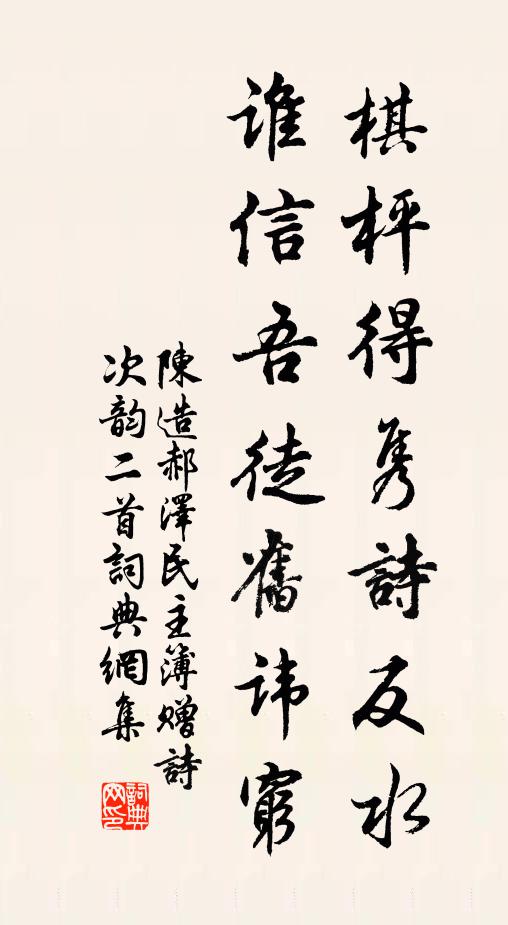 棋枰得隽詩反水
誰信吾徒舊讳窮
陳造郝澤民主簿贈詩
次韵二首詞典網集
詞典
网印